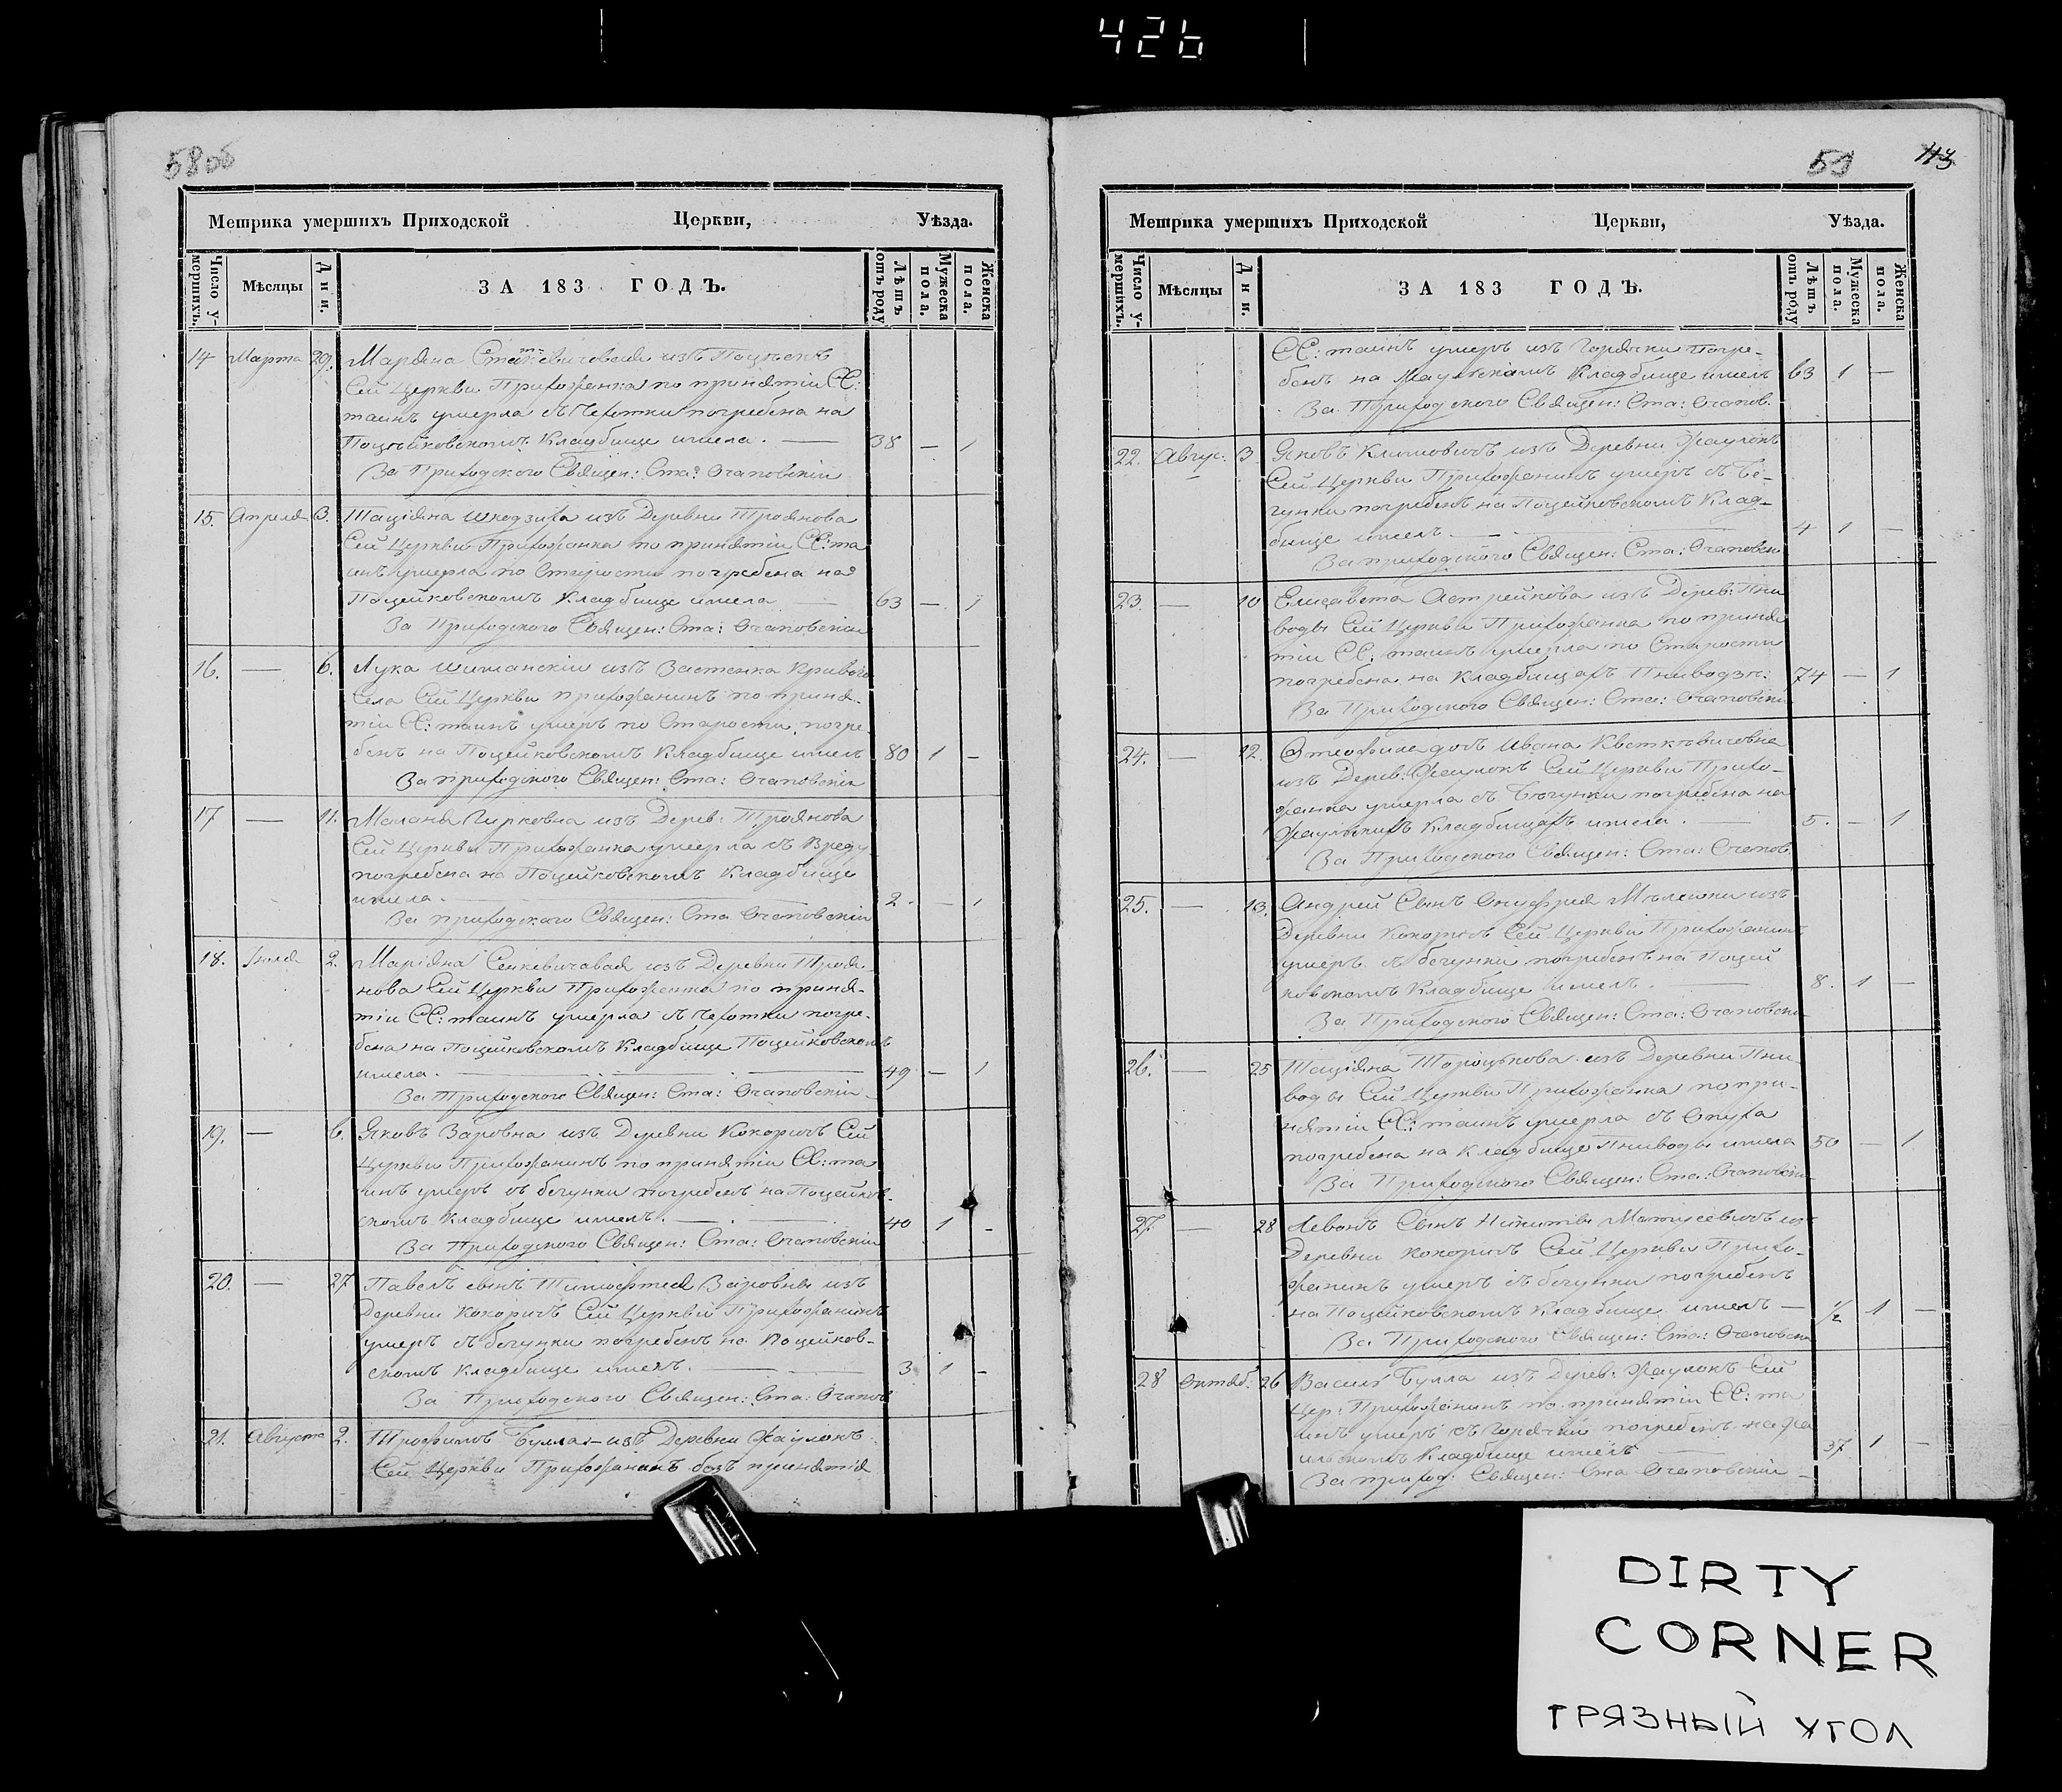 426
58об
Метрика умершихъ Приходской Церкви, Уѣзда.
Число умершихъ. Мѣсяцы Дни. ЗА 183 ГОДЪ. Лѣтъ отъ роду Мужеска пола. Женска пола.
14 Марта 29. Марьяна изъ
Сей Церкви Прихожанка по принятіи СС:
таинъ умерла съ Чехотки погребена на
Поцейковскомъ Кладбище имела. — 38 — 1
За Приходского Священ: Ста: Очаповскій
15. Апреля 3. Таціяна Шкодзиха изъ Деревни Троянова
Сей Церкви Прихожанка по принятіи СС: та
инъ умерла по Старости погребена на
Поцейковскомъ Кладбище имела — 63 — 1
За Приходского Священ: Ста: Очаповскій
16. — 6. Лука Шиманскій изъ Застенка Кривого
Села Сей Церкви прихожанинъ по приня-
тіи СС: таинъ умеръ по Старости погре
бенъ на Поцейковскомъ Кладбище имелъ 80 1 -
За приходского Священ: Ста: Очаповскій
17 — 11. Малання Гирковна изъ Дерев: Троянова
Сей Церкви Прихожанка умерла съ Вреду
погребена на Поцейковскомъ Кладбище
имела. — 2. — 1
За приходского Священ: Ста Очаповскій
18. Іюля 2. Маріяна Сенкевичавая изъ Деревни Троя-
нова Сей Церкви Прихожанка по приня-
тіи СС: таинъ умерла съ Чехотки погре-
бена на Поцейковскомъ Кладбище Поцейковскомъ
имела. — 49 — 1
За Приходского Священ: Ста: Очаповскій
19. — 6. Яковъ Заровна изъ Деревни Кокоричъ Сей
Церкви Прихожанинъ по принятіи СС: та
инъ умеръ съ бегунки погребенъ на Поцейков-
скомъ Кладбище имелъ. — 40 1 -
За Приходского Священ: Ста: Очаповскій
20. — 27 Павелъ сынъ Тимофтея Заровны изъ
Деревни Кокоричъ Сей Церквій Прихожанинъ
умеръ съ бегунки погребенъ на Поцейков-
скомъ Кладбище имелъ. — 3 1 -
За Приходского Священ: Ста: Очапов
21. Августа 2. Трофимъ Булла изъ Деревни Жаулокъ
Сей Церкви Прихожанинъ безъ принятія
59 113
Метрика умершихъ Приходской Церкви, Уѣзда.
Число умершихъ. Мѣсяцы Дни. ЗА 183 ГОДЪ. Лѣтъ отъ роду Мужеска пола. Женска пола.
СС: таинъ умеръ изъ Горячки погре-
бенъ на Кладбище имелъ 63 1 —
За Приходского Священ: Ста: Очапов.
22. Авгус: 3. Яковъ Климовичъ изъ Деревни Жаулокъ
Сей Церкви Прихожанинъ умеръ съ Бе-
гунки погребенъ на Поцейковскомъ Клад-
бище имелъ. — 4 1 —
За приходского Священ: Ста: Очаповск
23. — 10 Елисавета Астрейкова изъ Дерев: Пни
воды Сей Церкви Прихожанка по приня
тіи СС: таинъ умерла по Старости
погребена на Кладбищахъ 74 — 1
За Приходского Священ: Ста: Очаповскій
24. — 12. дочь Ивана
изъ Дерев: Жаулокъ Сей Церкви Прихо-
жанка умерла съ Бегунки погребена на
Кладбищахъ имела. — 5. — 1
За Приходского Священ: Ста: Очапов.
25. — 13. Андрей Сынъ Онуфрія изъ
Деревни Кокоричъ Сей Церкви Прихожанинъ
умеръ съ бегунки погребенъ на Поцей
ковскомъ Кладбище имелъ. — 8. 1 —
За Приходского Священ: Ста: Очаповскі
26. — 25 Таціяна изъ Деревни Пни
воды Сей Церкви Прихожанка по при-
нятіи СС: таинъ умерла съ Опуха
погребена на Кладбище Пниводы имела 50 — 1
За Приходского Священ: Ста: Очаповскій
27. — 28 Леванъ Сынъ Никиты Матусевичъ изъ
Деревни Кокоричъ Сей Церкви Прихо-
жанинъ умеръ съ бегунки погребенъ
на Поцейковскомъ Кладбище имелъ — 1/2 1 —
За Приходского Священ: Ста: Очаповскі
28 Октяб. 26 Василь Булла изъ Дерев: Жаулокъ Сей
Цер: Прихожанинъ по принятіи СС: та
инъ умеръ съ Горячки погребенъ на Жа
ульскомъ Кладбище имелъ — 37 1 —
За приход: Священ: Ста Очаповскій
DIRTY
CORNER
ГРЯЗНЫЙ УГОЛ